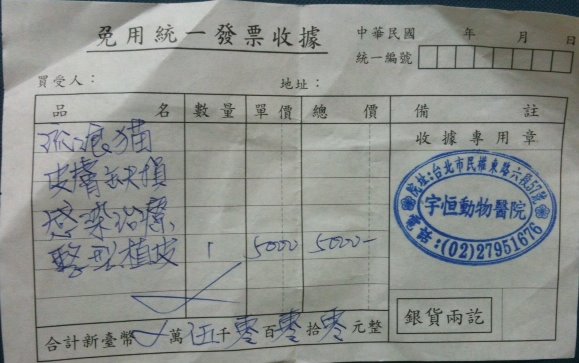 免用統一發票收據
中華民國 年 月 日
統一編號
買受人： 地址：
品名 數量 單價 總價 備註
收據專用章
流浪貓
皮膚缺損
感染治療
整形植皮 1 5000 5000-
院址:台北市民權東路六段57號
宇恒動物醫院
電話:(02)27951676
合計新臺幣 萬伍千零百零拾零元整
銀貨兩訖